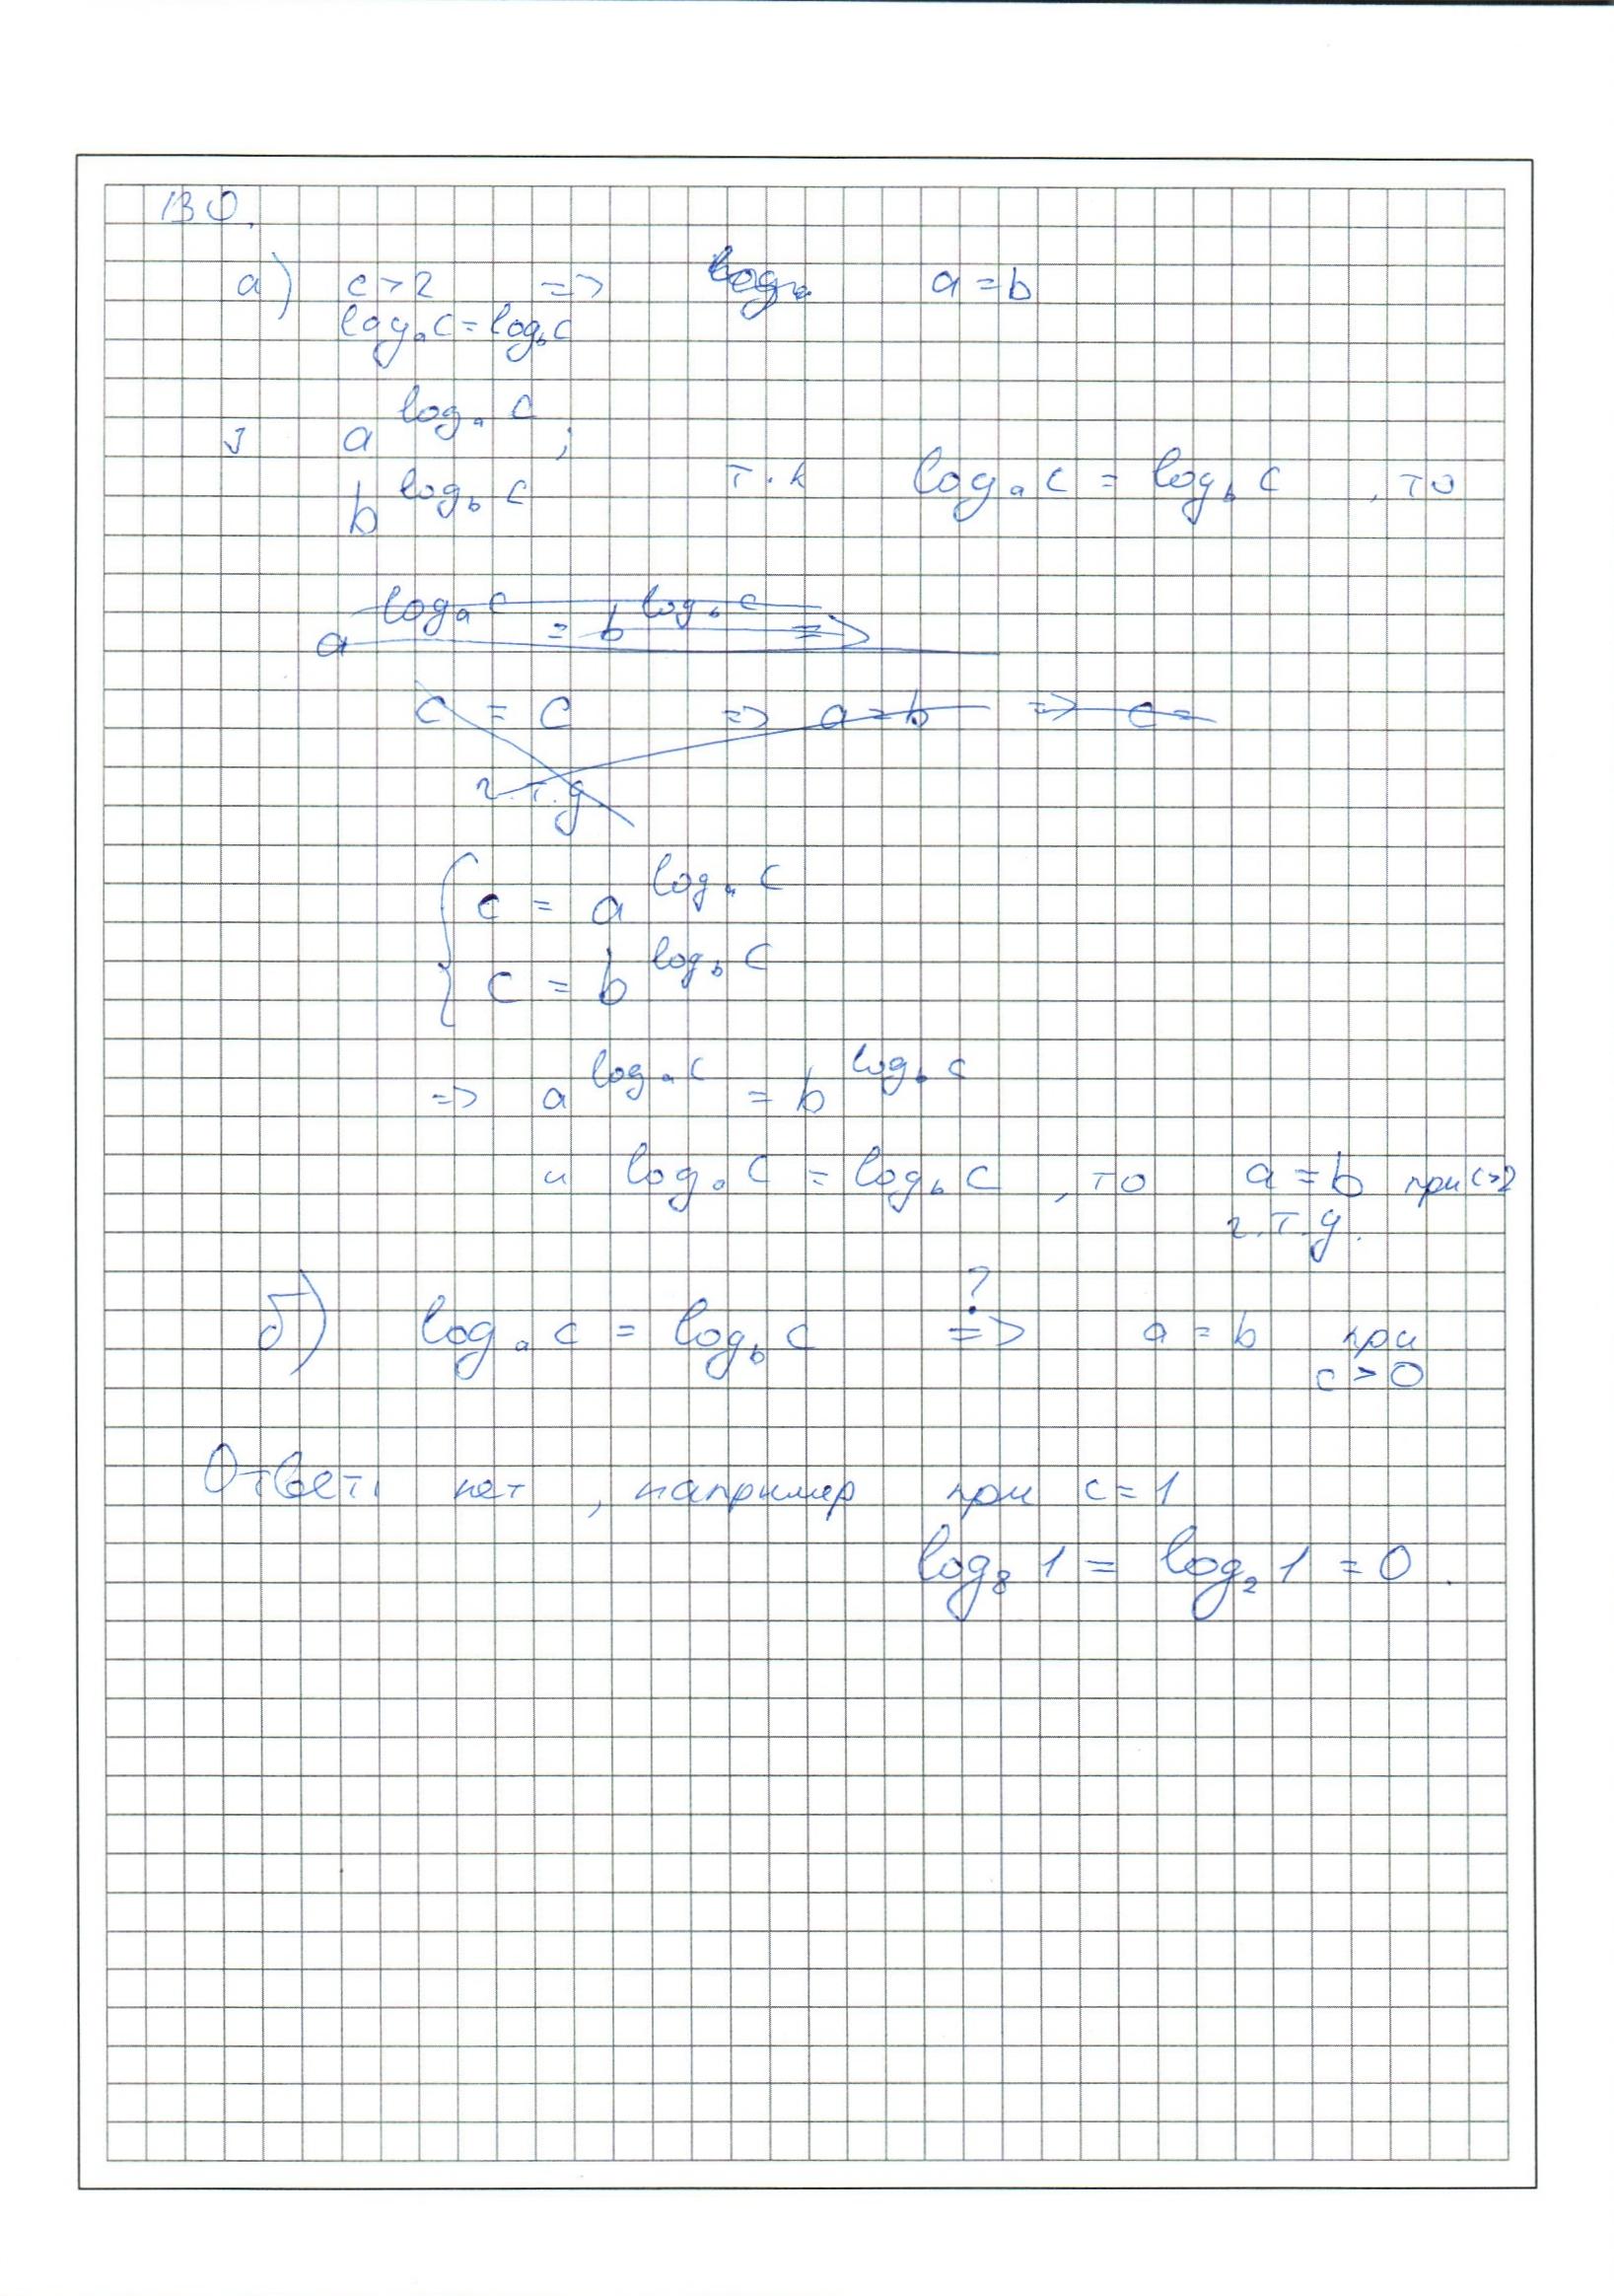 130.
а) c > 2 => a = b
logₐc = log_b c
a^(logₐ c) ;
b^(log_b c) т.к logₐ c = log_b c , то
a^(logₐ c) = b^(log_b c) =>
c = c => a = b => c =
ч.т.д
{ c = a^(logₐ c)
c = b^(log_b c)
=> a^(logₐ c) = b^(log_b c)
и logₐ c = log_b c , то a = b при c>2
ч.т.д.
б) logₐ c = log_b c ?=> a = b при
c > 0
Ответ: нет , например при c = 1
log₈ 1 = log₂ 1 = 0 .